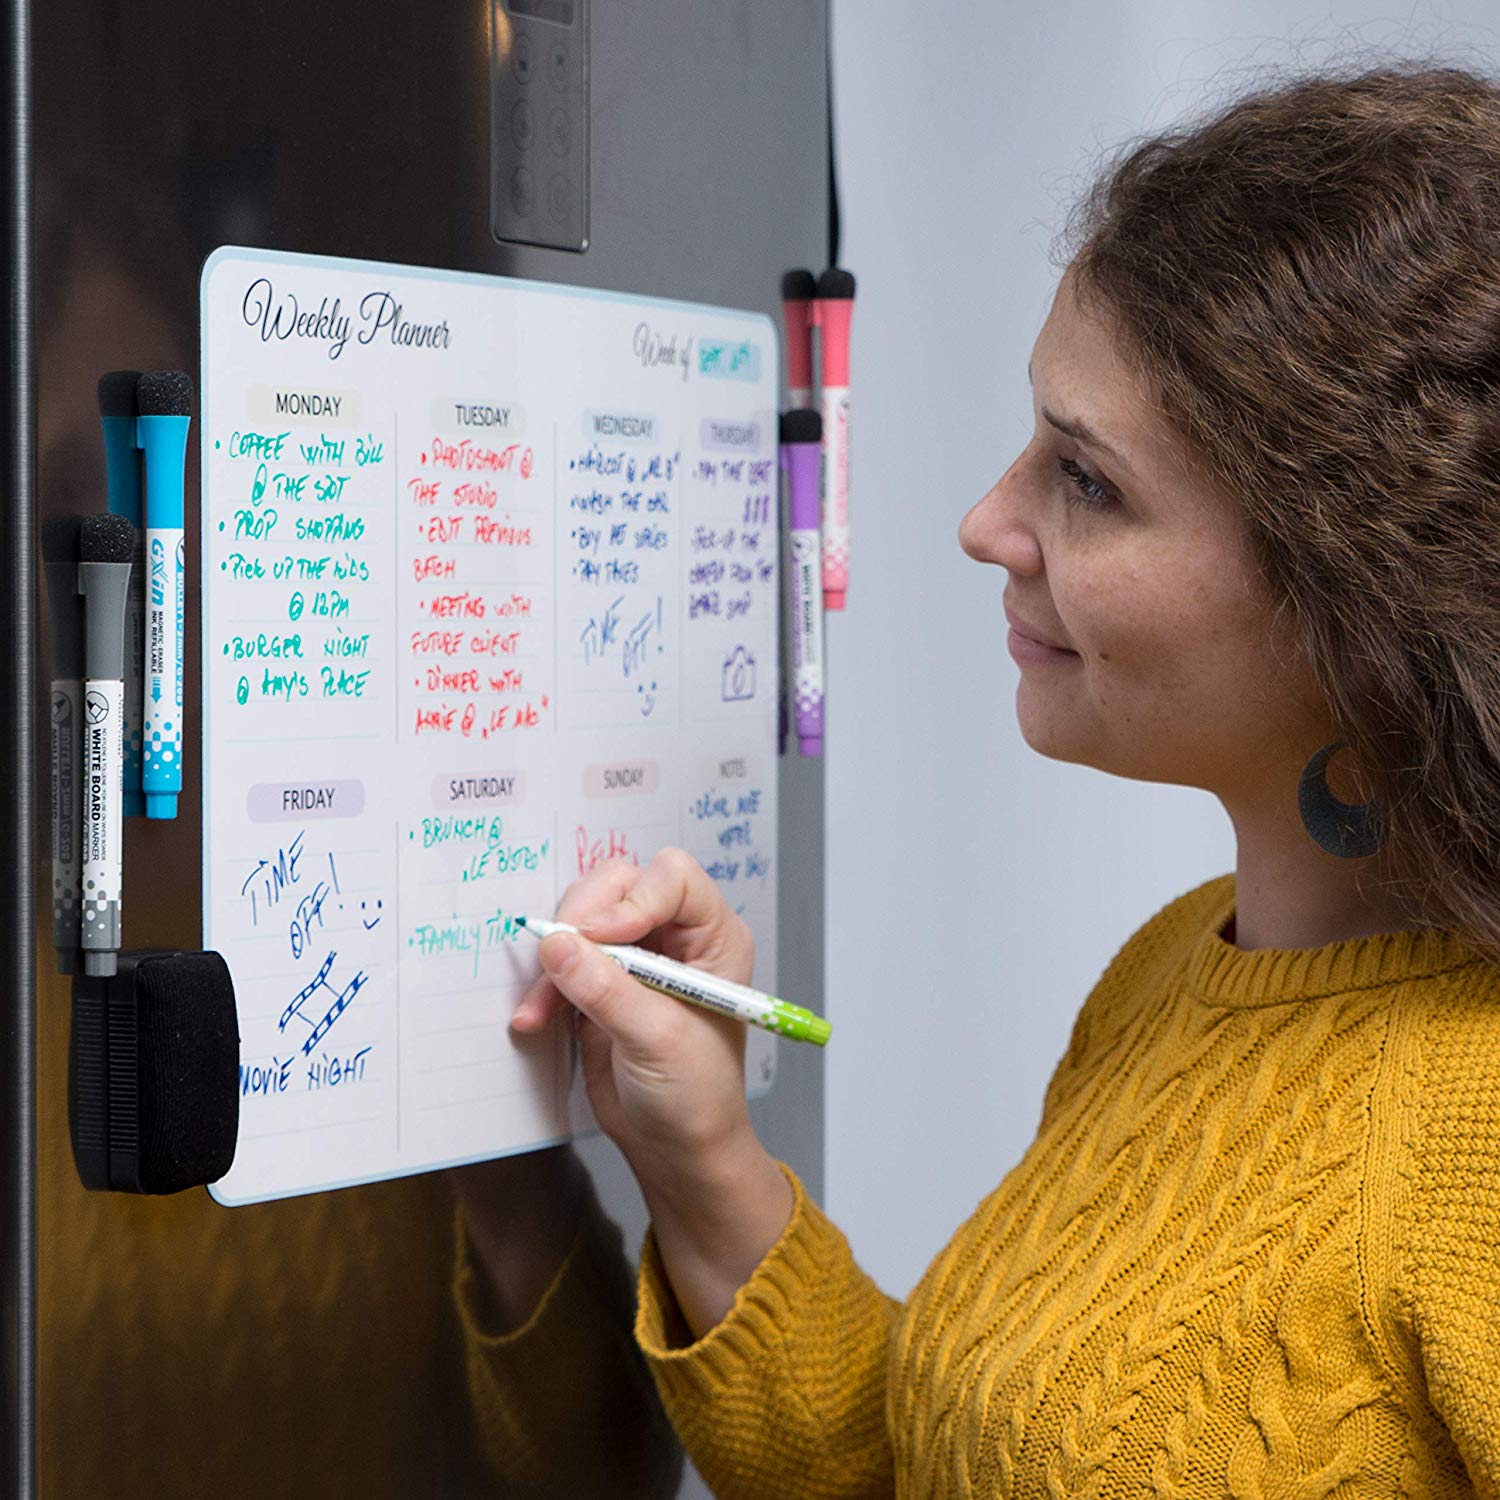 Weekly Planner
Week of
MONDAY
• COFFEE WITH BILL
@ THE SPOT
• PROP SHOPPING
• PICK UP THE KIDS
@ 12PM
• BURGER NIGHT
@ AMY'S PLACE
TUESDAY
• PHOTOSHOOT @
THE STUDIO
• EDIT PREVIOUS
BATCH
• MEETING WITH
FUTURE CLIENT
• DINNER WITH
ANNIE @ „LE MAC"
WEDNESDAY
• HAIRCUT @
• WASH THE CAR
• BUY
• PAY TAXES
TIME
OFF!
THURSDAY
• PAY THE
PICK-UP THE
FROM THE
SHOP
FRIDAY
TIME
OFF!
MOVIE NIGHT
SATURDAY
• BRUNCH @
„LE BISTRO"
• FAMILLY TIME
SUNDAY
NOTES
• DRINK MORE
WATER
GXin
MAGNETIC-ERASER
INK REFILLABLE
BULLET 1-2mm/G-208
WHITE BOARD MARKER
WHITE BOARD
WHITE BOARD MARKER